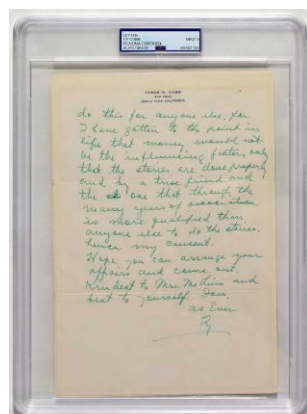 LETTER
TY COBB
TYRUS R. COBB
do this for anyone else. For
I have gotten to the point in
life that money, would not
be the influencing factor, only
that the stories are done properly
and by a true friend and
the one that through the
many years of association
is more qualified than
anyone else to do the stories,
hence my consent.
Hope you can arrange your
affairs and come out.
Kindest to Mrs. and
best to yourself.
as Ever
Ty